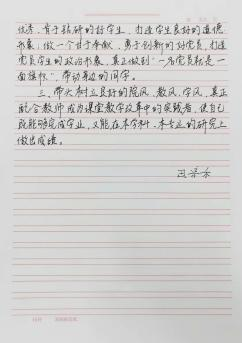 优秀、肯于钻研的好学生,打造学生良好的道德
形象;做一个甘于奉献、勇于创新的好党员,打造
党员学生的政治形象,真正做到“一名党员就是一
面旗帜”,带动身边的同学。
三、带头树立良好的院风、教风、学风,真正
配合教师成为课堂教学改革中的实践者,使自己
既能够完成学业,又能在本学科、本专业的研究上
做出成绩。